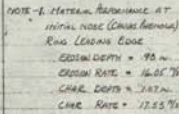 NOTE-1. MATERIAL PERFORMANCE AT
INITIAL NOSE
RING LEADING EDGE
EROSION DEPTH = .98 IN.
EROSION RATE = 16.05
CHAR DEPTH = 1.07 IN.
CHAR RATE = 17.53